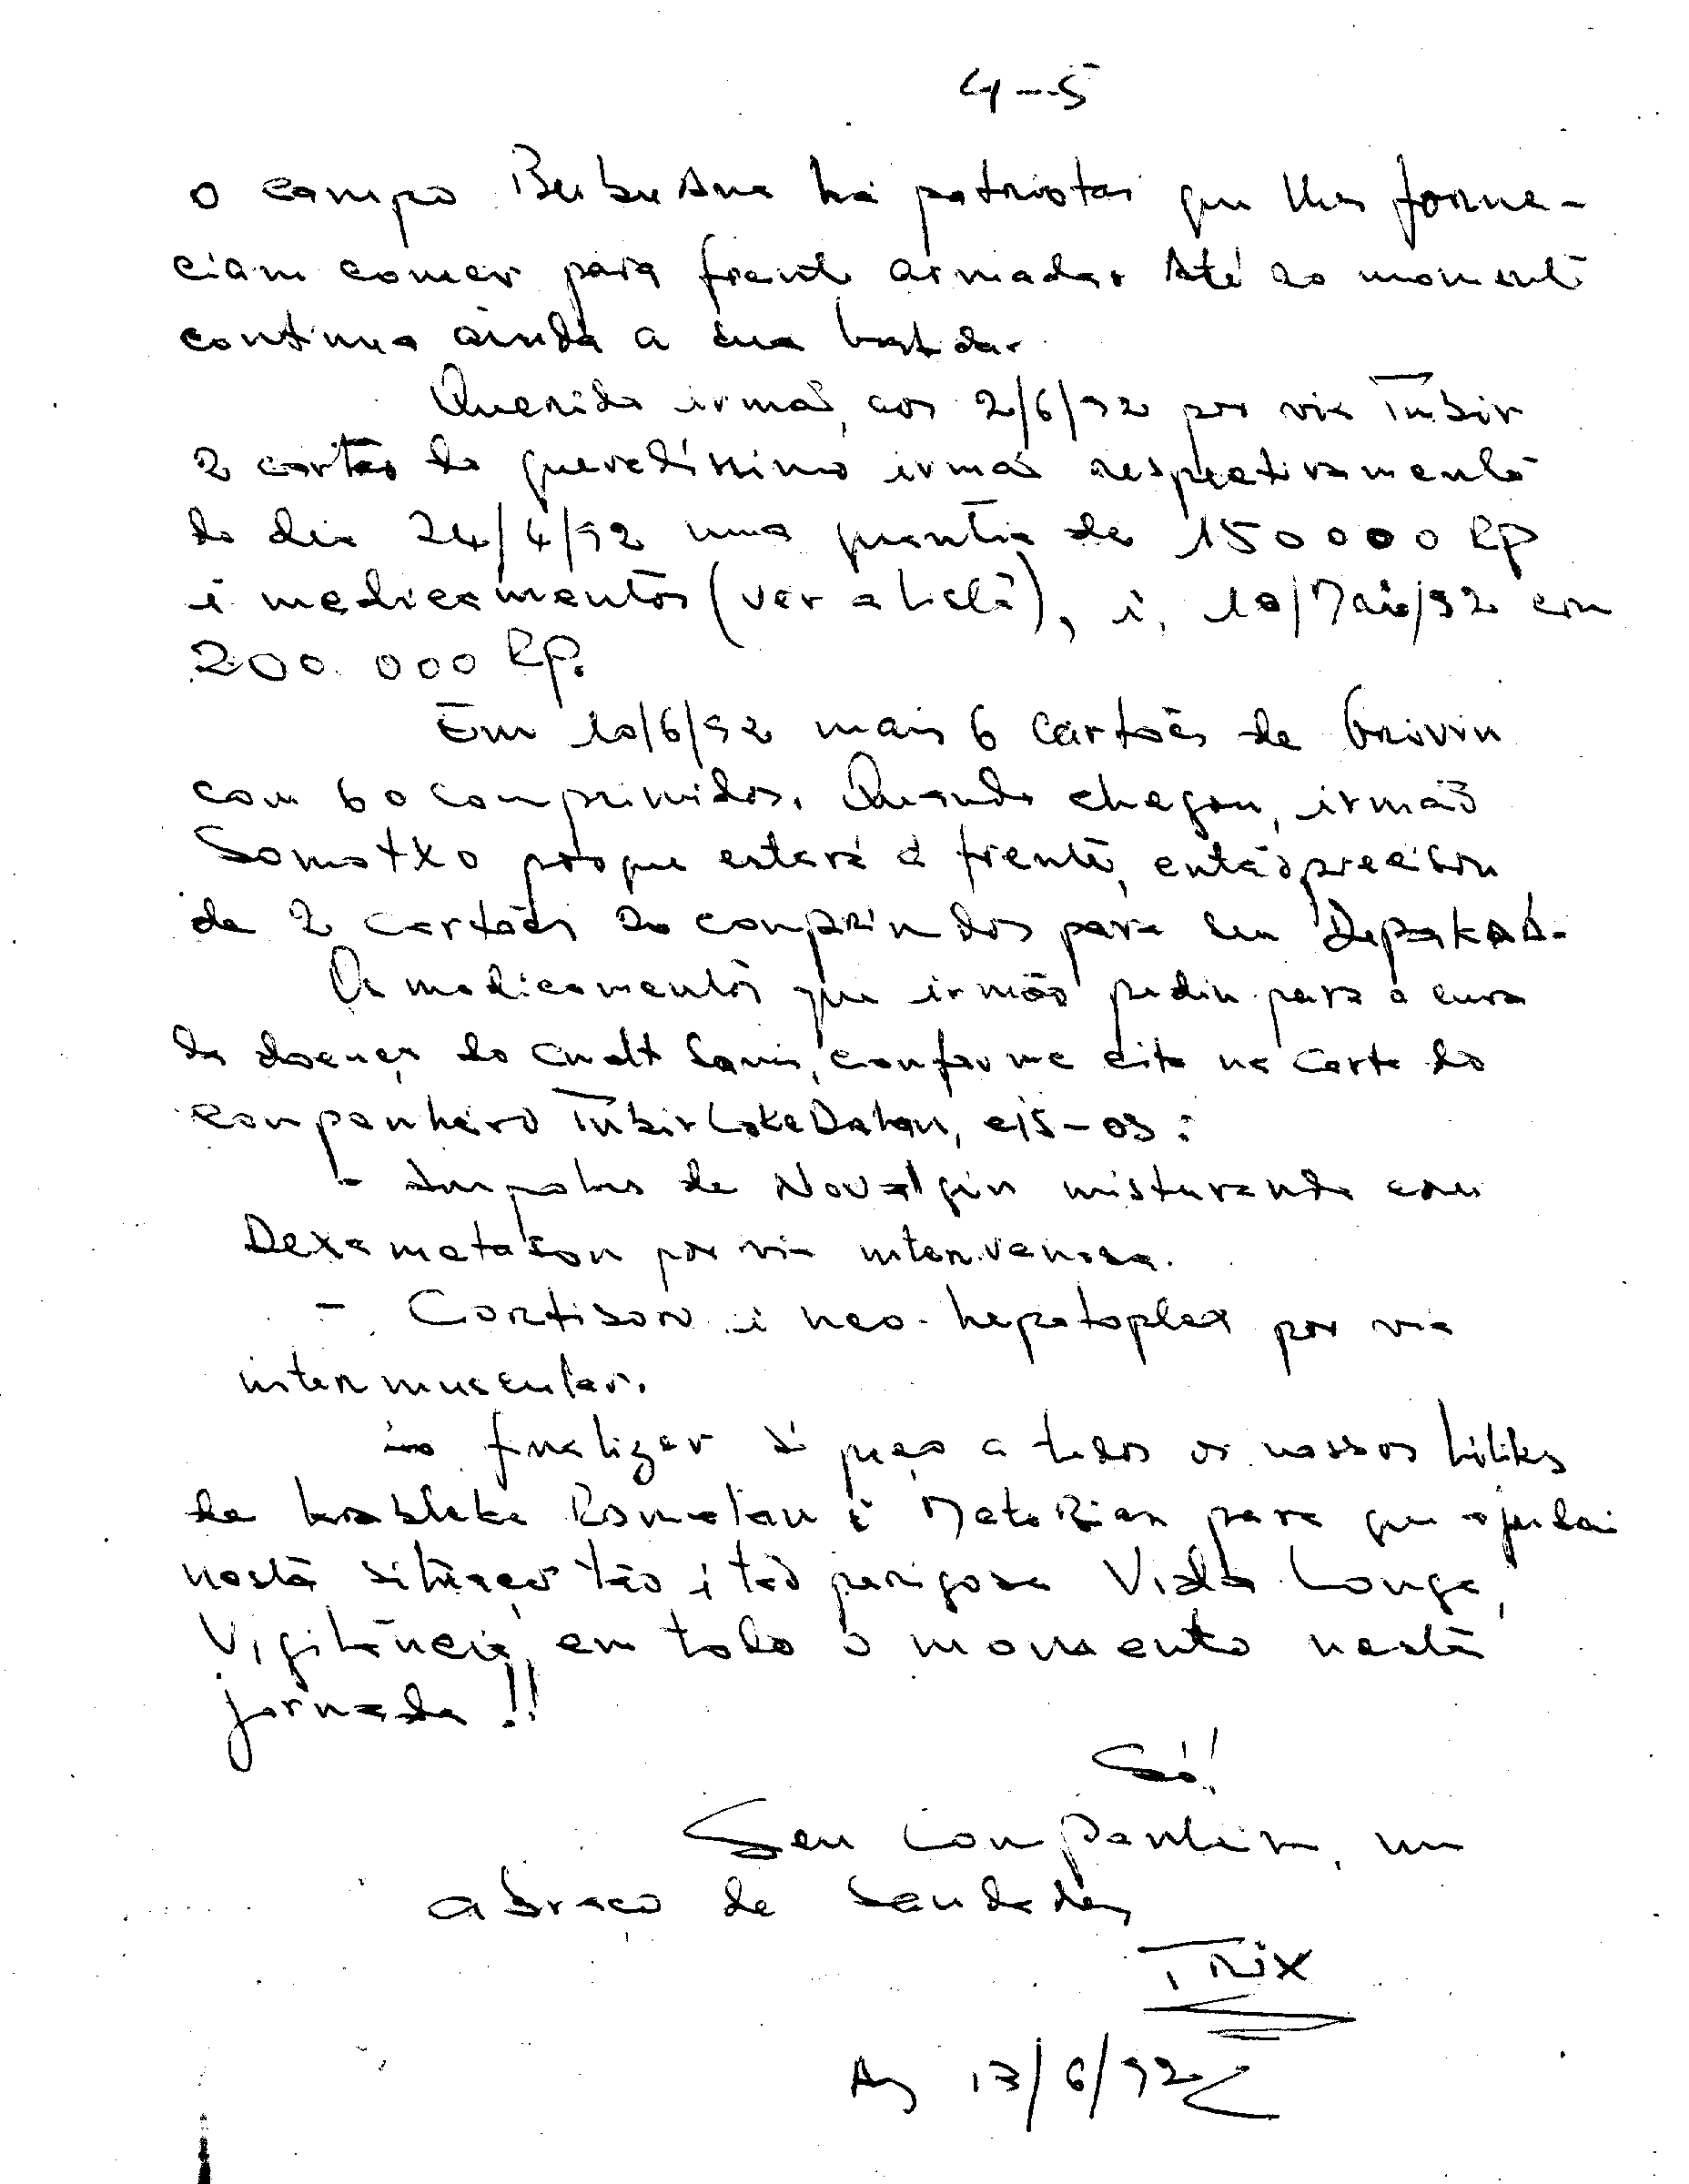 4-5
o campo há patriotas que lhes forne-
ciam comer para frente armada. Até ao momentô
continua ainda a sua batida.
Querido irmão, aos 2/6/92 por via Tubir
2 cartas do queredíssimo irmão respectivamentê
do dia 24/4/92 uma quantia de 150000 RP
i medicamentos (ver a listâ), i, 10/Maio/92 com
200.000 RP.
Em 10/6/92 mais 6 cartões de
com 60 comprimidos. Quando chegou, irmão
Somotxo porque estará à frentê, então precisou
de 2 cartões 20 comprimdos para seu
Os medicamentos que irmão pediu para a cura
da doença do cmdt conforme cita na carta do
companheiro Tubir Loke Dalan, eis-os:
- Ampolas de Novalgin misturando com
Dexametason por via intervenosa.
- Cortison i neo-hepatoplex por via
intermuscular.
Ao finalizar só peço a todos os nossos
de para que ajudai
nestâ situação tão i tão perigosa Vida Longa,
Vigilância, em todo o momento nestâ
jornada!!
Só!
Seu companheiro, um
abraço de saudades
TRix
Aos 13/6/92